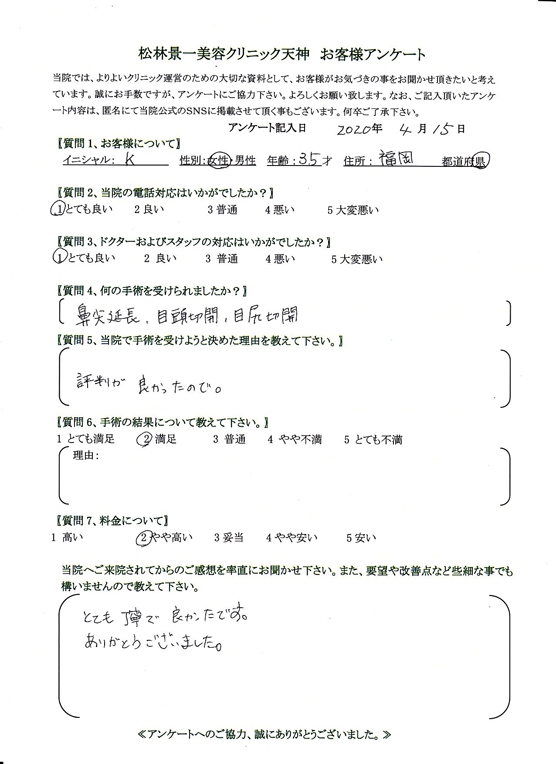 松林景一美容クリニック天神　お客様アンケート
当院では、よりよいクリニック運営のための大切な資料として、お客様がお気づきの事をお聞かせ頂きたいと考え
ています。誠にお手数ですが、アンケートにご協力下さい。よろしくお願い致します。なお、ご記入頂いたアンケ
ート内容は、匿名にて当院公式のSNSに掲載させて頂く事もございます。何卒ご了承下さい。
アンケート記入日　2020年　4月15日
【質問1、お客様について】
イニシャル: K　性別:女性・男性　年齢:35才　住所:福岡　都道府県
【質問2、当院の電話対応はいかがでしたか？】
1とても良い　2良い　3普通　4悪い　5大変悪い
【質問3、ドクターおよびスタッフの対応はいかがでしたか？】
1とても良い　2 良い　3 普通　4悪い　5大変悪い
【質問4、何の手術を受けられましたか？】
鼻尖延長、目頭切開、目尻切開
【質問5、当院で手術を受けようと決めた理由を教えて下さい。】
評判が良かったので。
【質問6、手術の結果について教えて下さい。】
1 とても満足　2 満足　3 普通　4 やや不満　5 とても不満
理由:
【質問7、料金について】
1 高い　2やや高い　3妥当　4やや安い　5安い
当院へご来院されてからのご感想を率直にお聞かせ下さい。また、要望や改善点など些細な事でも
構いませんので教えて下さい。
とても丁寧で良かったです。
ありがとうございました。
≪アンケートへのご協力、誠にありがとうございました。≫